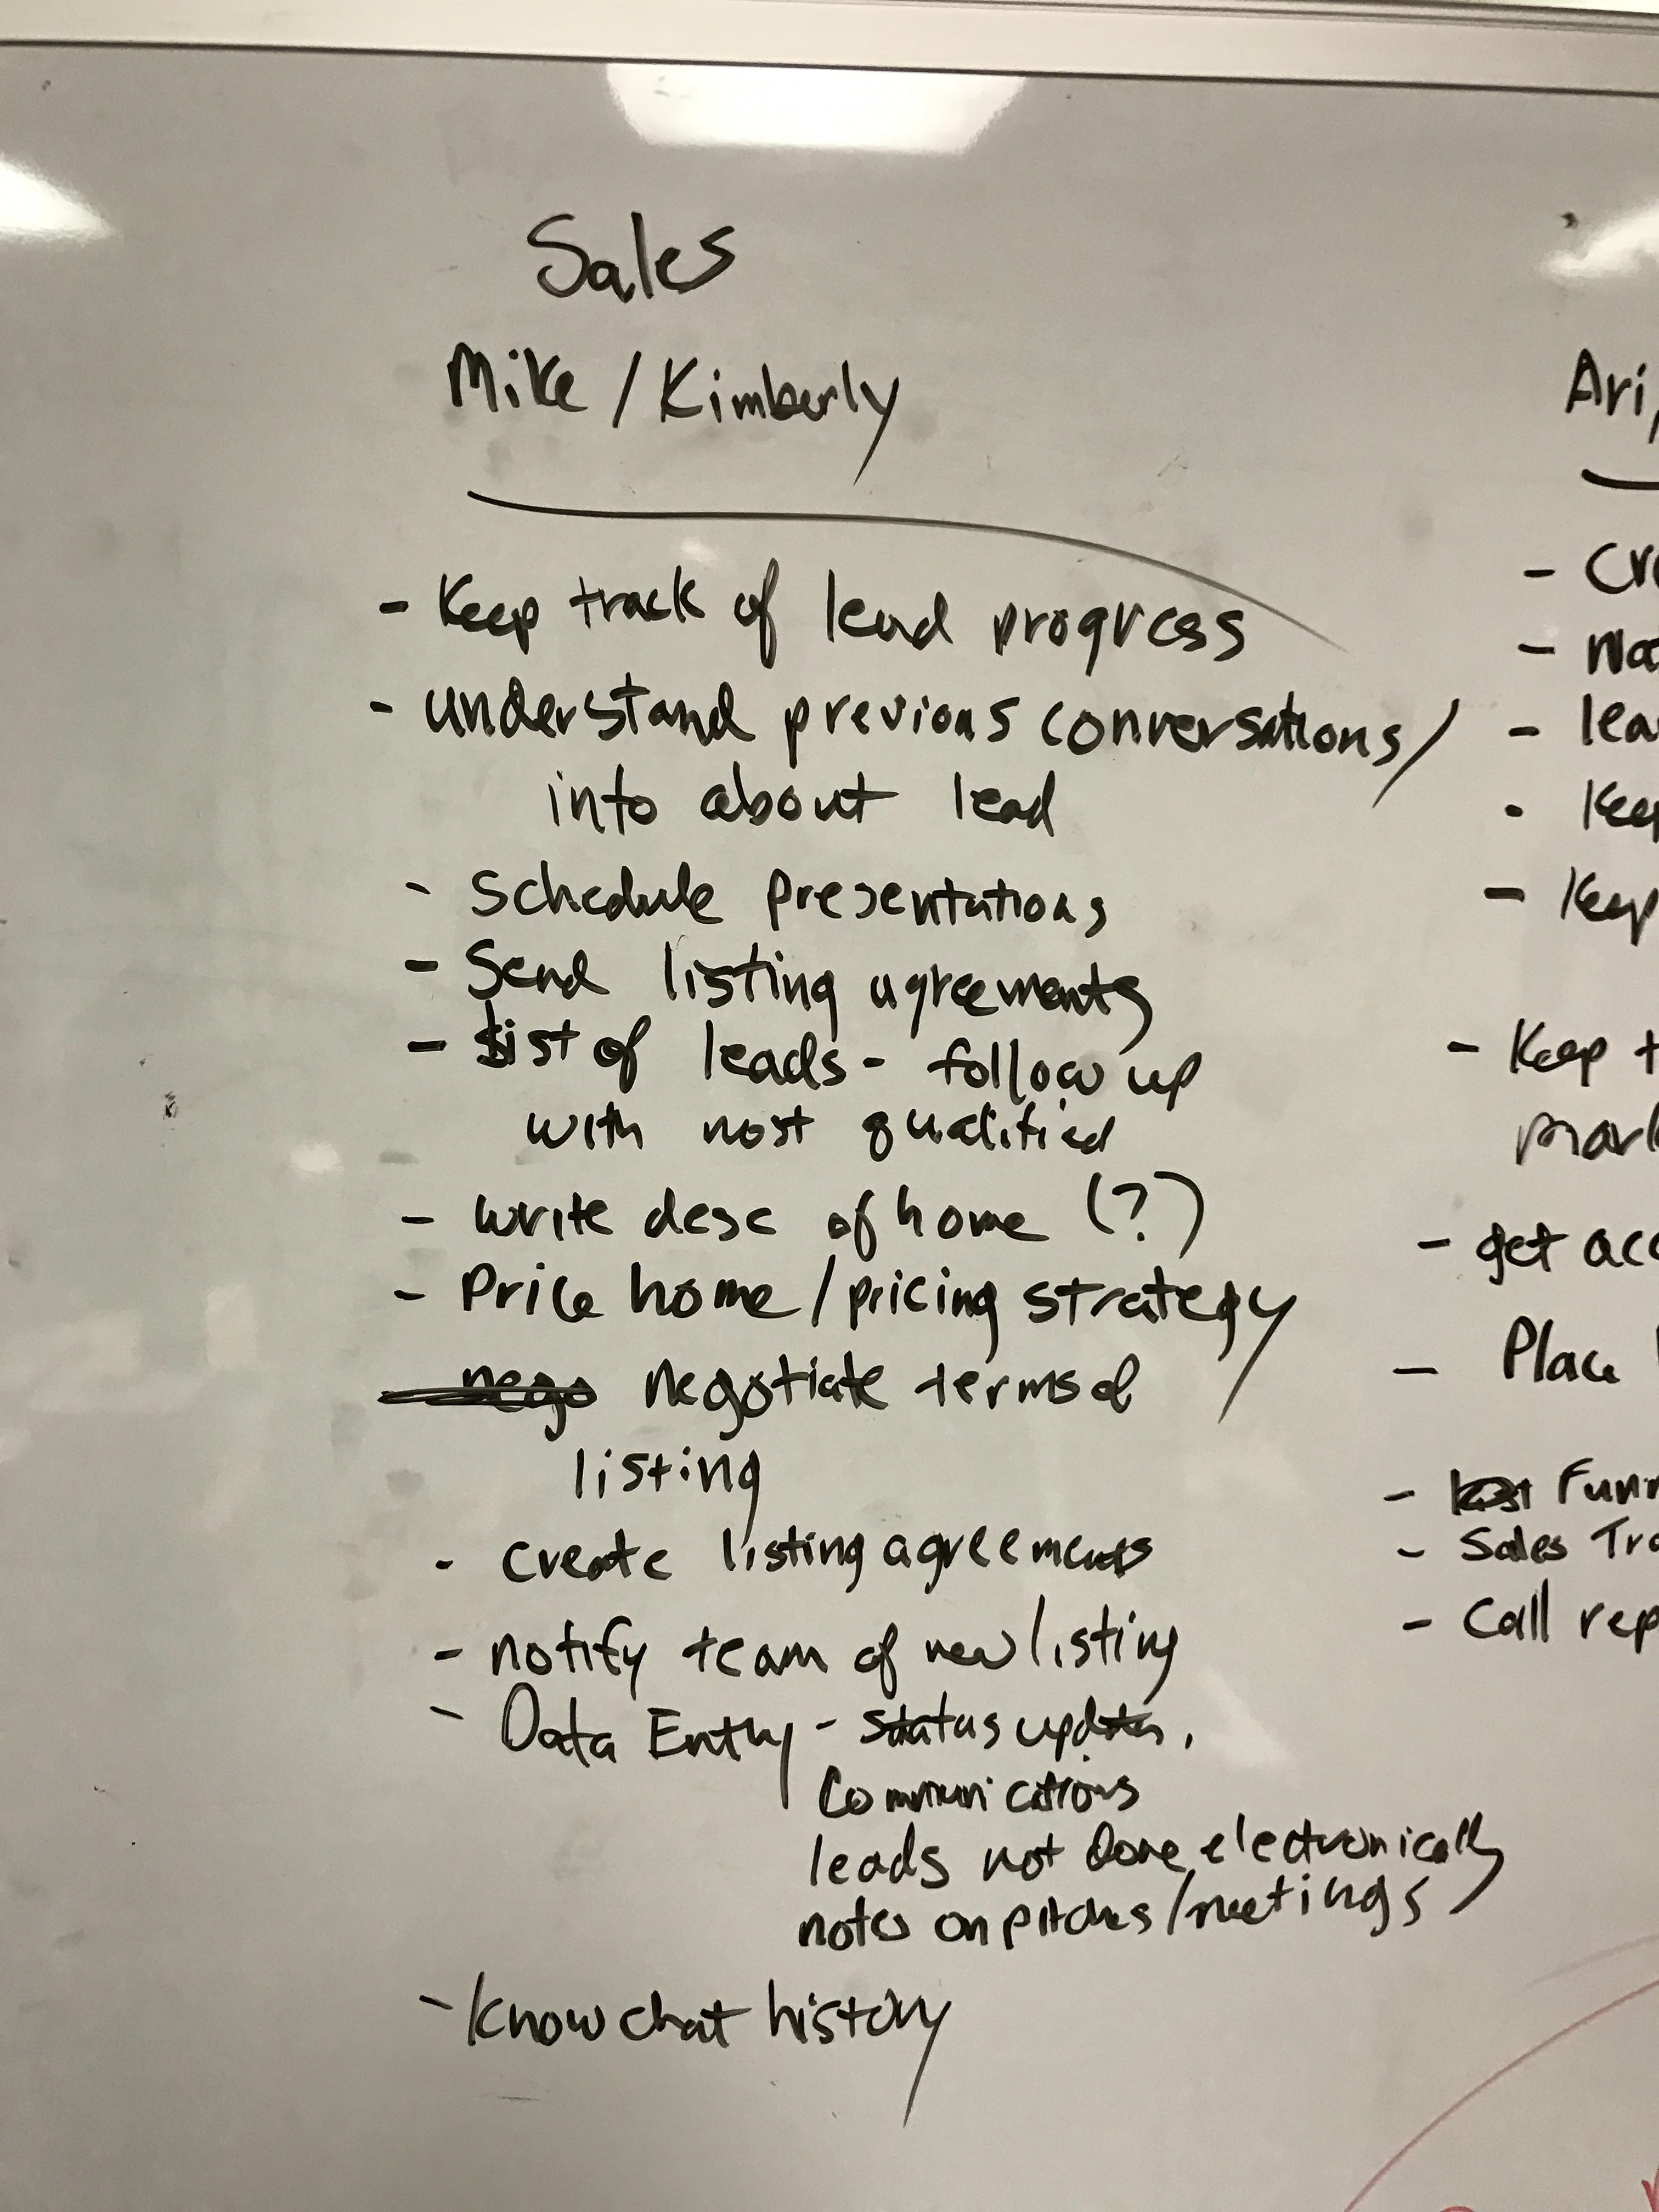 Sales
Mike / Kimberly
- Keep track of lead progress
- understand previous conversations/
into about lead
- Schedule presentations
- Send listing agreements
- List of leads - follow up
with most qualified
- write desc of home (?)
- Price home / pricing strategy
nego negotiate terms of
listing
- create listing agreements
- notify team of new listing
- Data Entry - status updates,
Communications
leads not done electronically
notes on pitches/meetings
- Know chat history
Ari,
- Cre
- Mat
- lea
- Keep
- Keep
- Keep t
mark
- get acc
- Place
- Funn
- Sales Tra
- Call rep